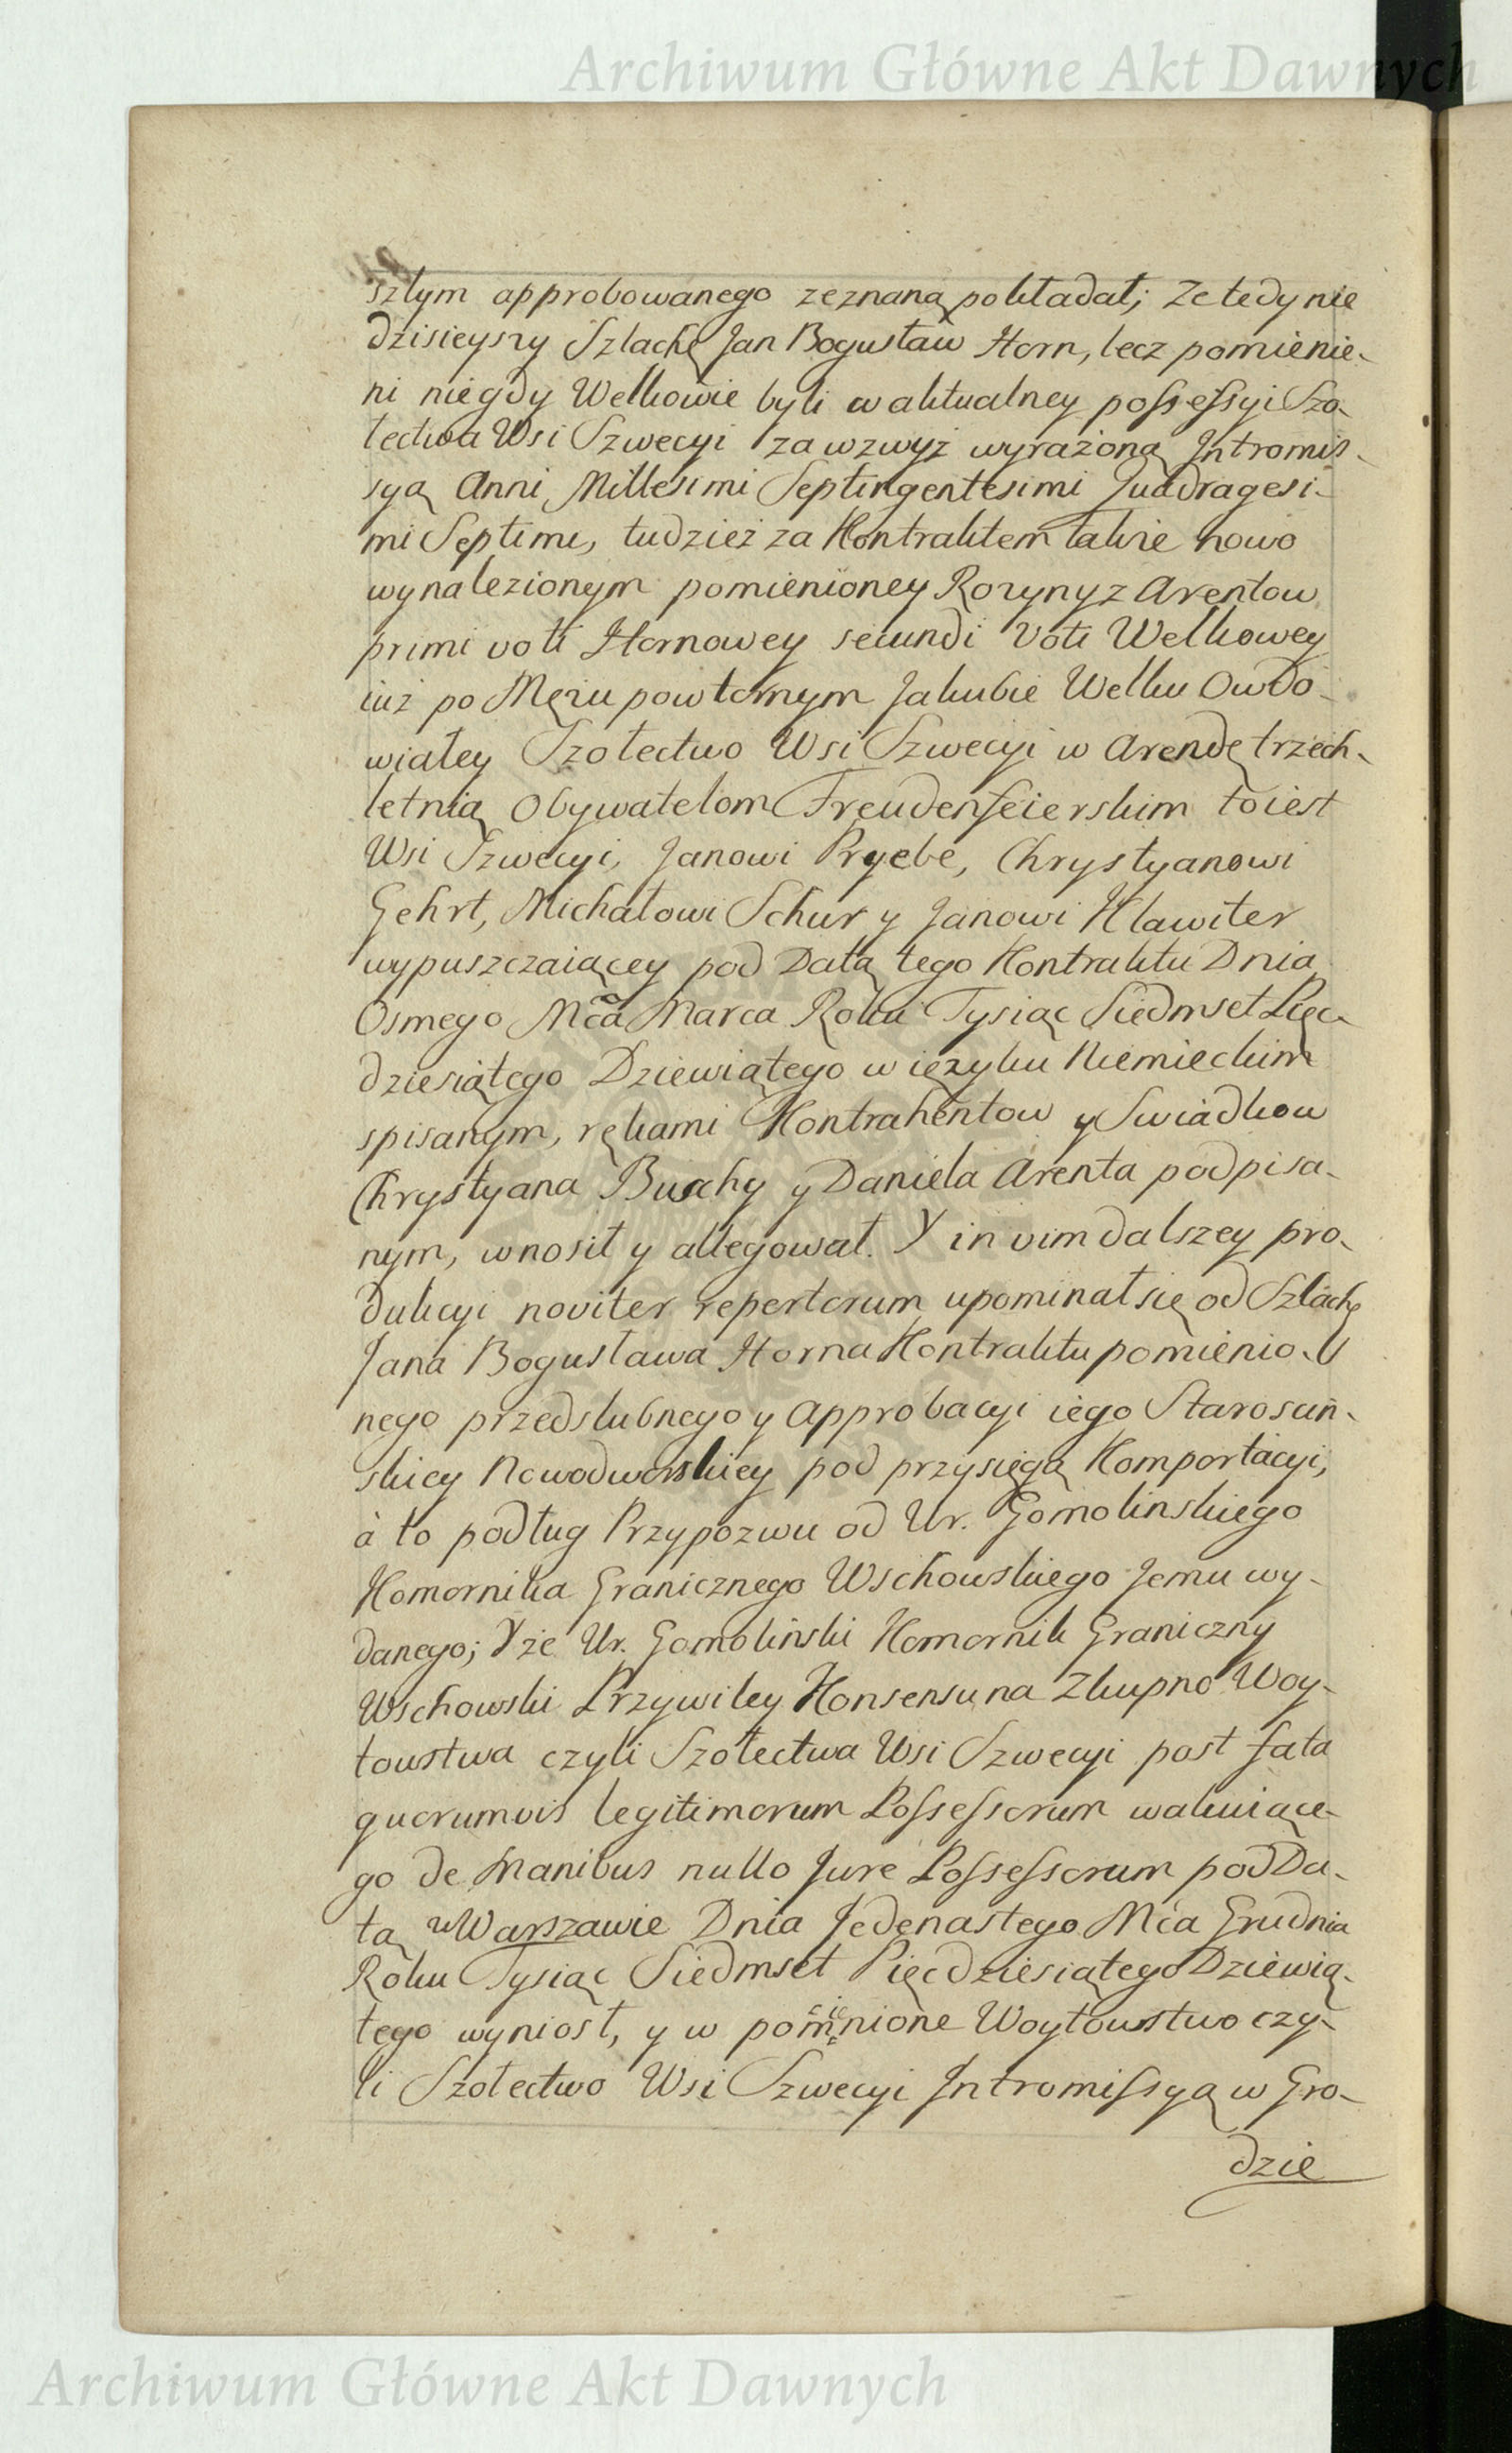 Archiwum Główne Akt Dawnych
szłym approbowanego zeznaną pokładał; Ze tedy nie
dzisieyszy Szlachę Jan Bogusław Horn, lecz pomienie-
ni niegdy Welkowie byli w aktualney possessyi Szo-
łectwa Wsi Szwecyi za wzwyż wyrażoną Intromis-
syą Anni Millesimi Septingentesimi Quadragesi-
mi Septimi, tudzież za Kontraktem także nowo
wynalezionym pomienioney Rozyny z Arentow
primi voti Hornowey secundi voti Welkowey
iuż po Mężu powtornym Jakubie Welku Owdo-
wiałey Szołectwo Wsi Szwecyi w Arendę trzech-
letnią Obywatelom Freudenfeierskim toiest
Wsi Szwecyi, Janowi Pryebe, Chrystyanowi
Gehrt, Michałowi Schur y Janowi Klawiter
wypuszczaiącey pod Datą tego Kontraktu Dnia
Osmego Mca Marca Roku Tysiąc Siedmset Pięć-
dziesiątego Dziewiątego w ięzyku Niemieckim
spisanym, rękami Kontrahentow y Swiadkow
Chrystyana Buchy y Daniela Arenta podpisa-
nym, wnosił y allegował. Y in vim dalszey pro-
dukcyi noviter repertorum upominał się od Szlachę
Jana Bogusława Horna Kontraktu pomienio-
nego przedslubnego y Approbacyi iego Starosciń-
skiey Nowodworskiey pod przysięgą Komportacyi,
à to podług Przypozwu od Ur. Gomolinskiego
Komornika Granicznego Wschowskiego Jemu wy-
danego; Y że Ur. Gomolinski Komornik Graniczny
Wschowski Przywiley Konsensu na Zkupno Woy-
towstwa czyli Szołectwa Wsi Szwecyi post fata
quorumvis legitimorum Possessorum wakuiące-
go de Manibus nullo Jure Possessorum pod Da-
tą w Warszawie Dnia Jedenastego Mca Grudnia
Roku Tysiąc Siedmset Pięcdziesiątego Dziewią-
tego wyniosł, y w pomienione Woytowstwo czy-
li Szołectwo Wsi Szwecyi Intromissyą w Gro-
dzie
Archiwum Główne Akt Dawnych